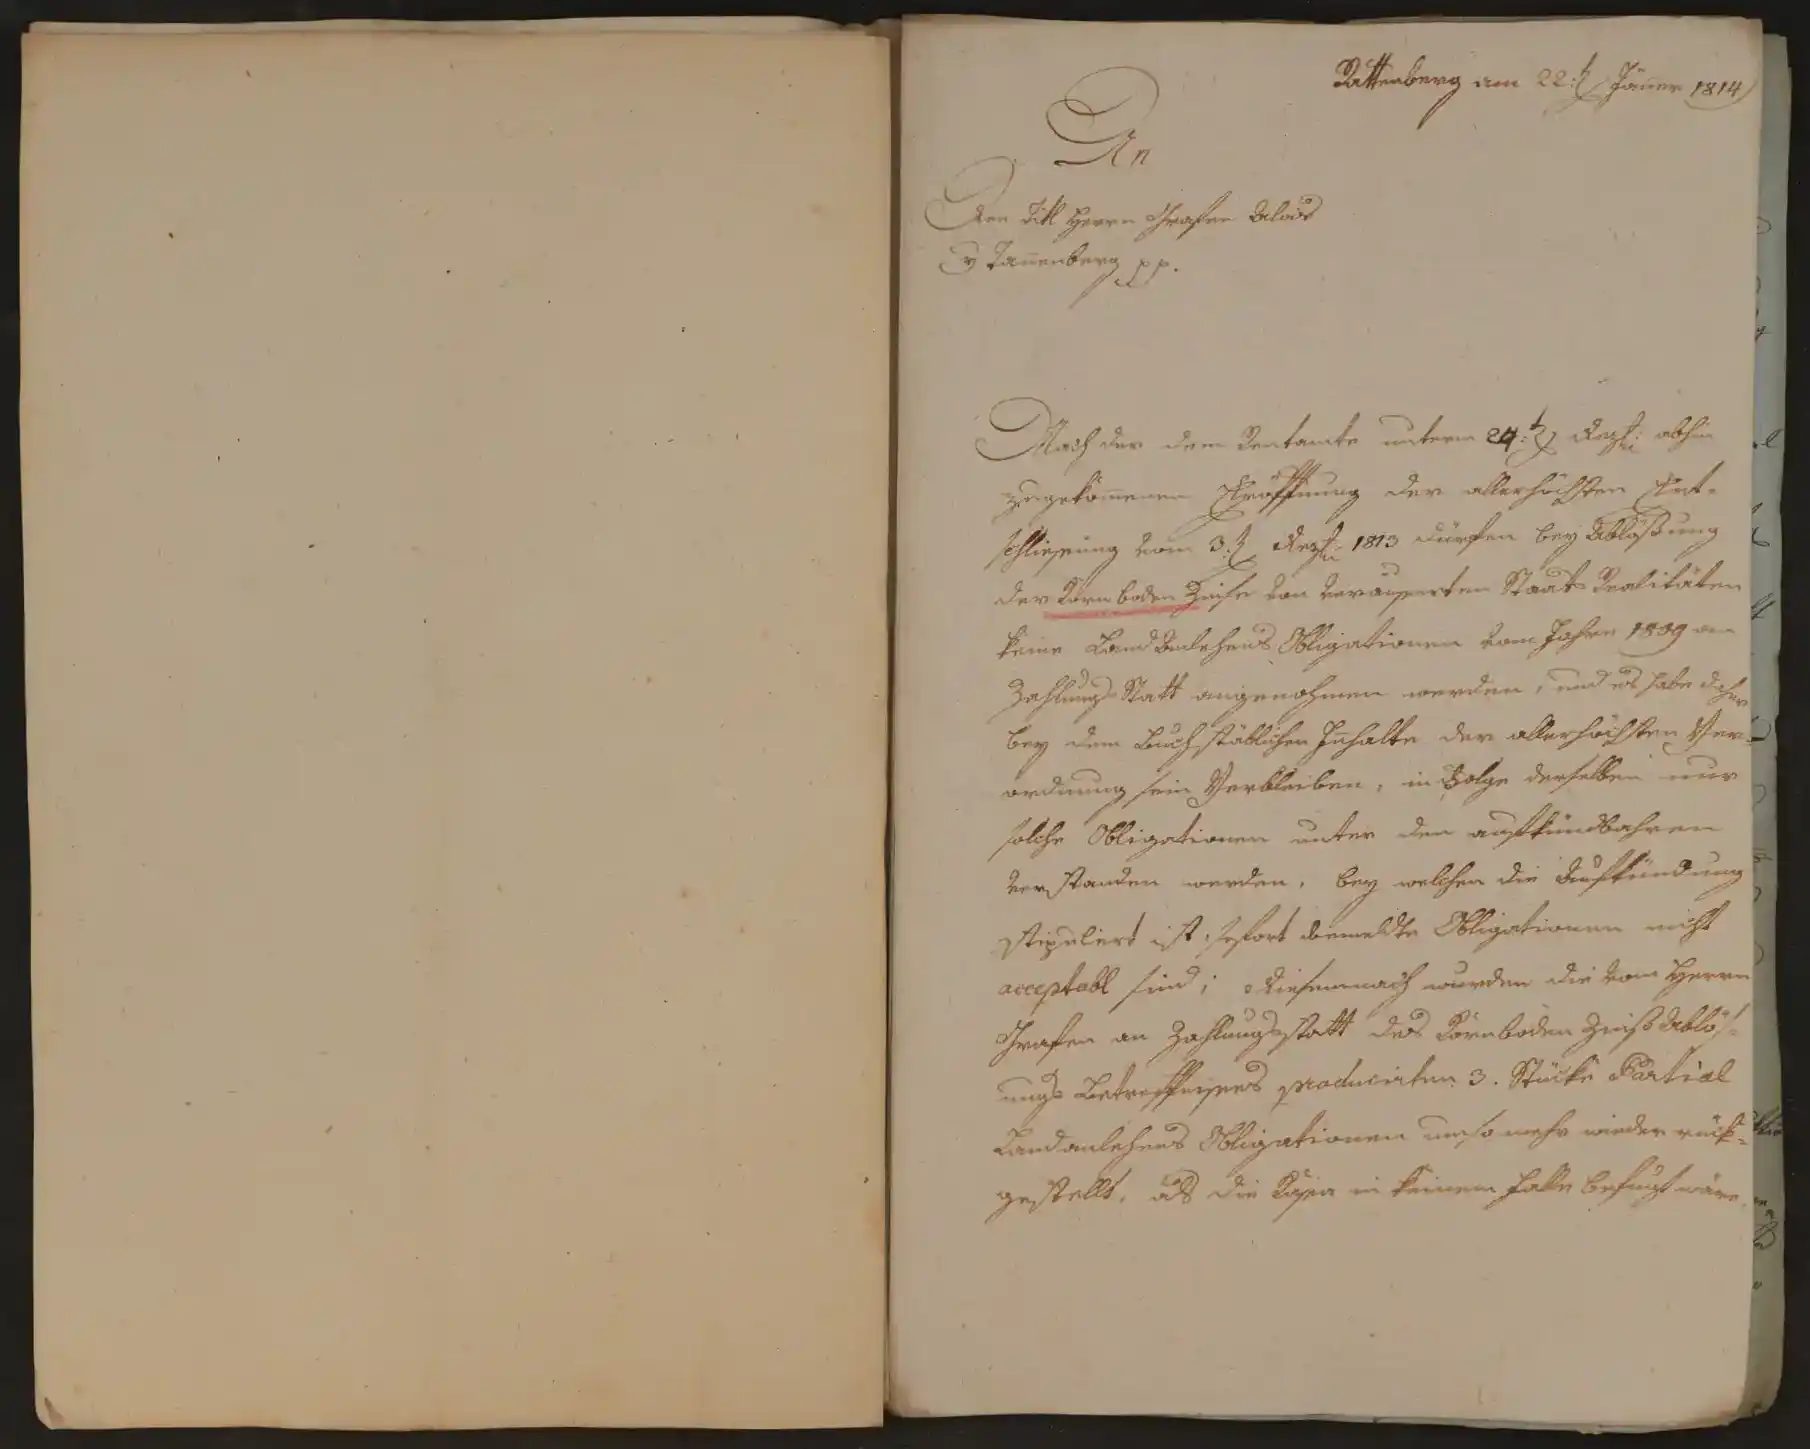 Rattenberg am 22:t Jäner 1814
An
Den Titl Herrn Grafen Alois
v Tannenberg pp.
Nach der dem Rentamte unterm 24:t Dezb: abhin
zugekommenen Eröffnung der allerhöchsten Ent-
schliesung vom 3:t Dezb: 1813 dürfen bey Ablößung
der Kornboden Zinse von veräuserten Staats Realitäten
keine Land Anlehens Obligationen vom Jahre 1809 an
Zahlungs Statt angenohmen werden, und es habe daher
bey dem Buchstäblichen Inhalte der allerhöchsten Ver-
ordnung sein Verbleiben, in Folge derselben nur
solche Obligationen unter den aufkündbahren
verstanden werden, bey welchen die Aufkündung
stipuliert ist, sofort bemeldte Obligationen nicht
acceptabl sind; diesemnach wurden die vom Herrn
Grafen an Zahlungsstatt des Kornboden Zinß Ablös-
ungs Betreffnißes producirten 3. Stücke Partial
Landanlehens Obligationen umso mehr wieder rück-
gestellt, als die Kaßa in keinem Falle befugt wäre,